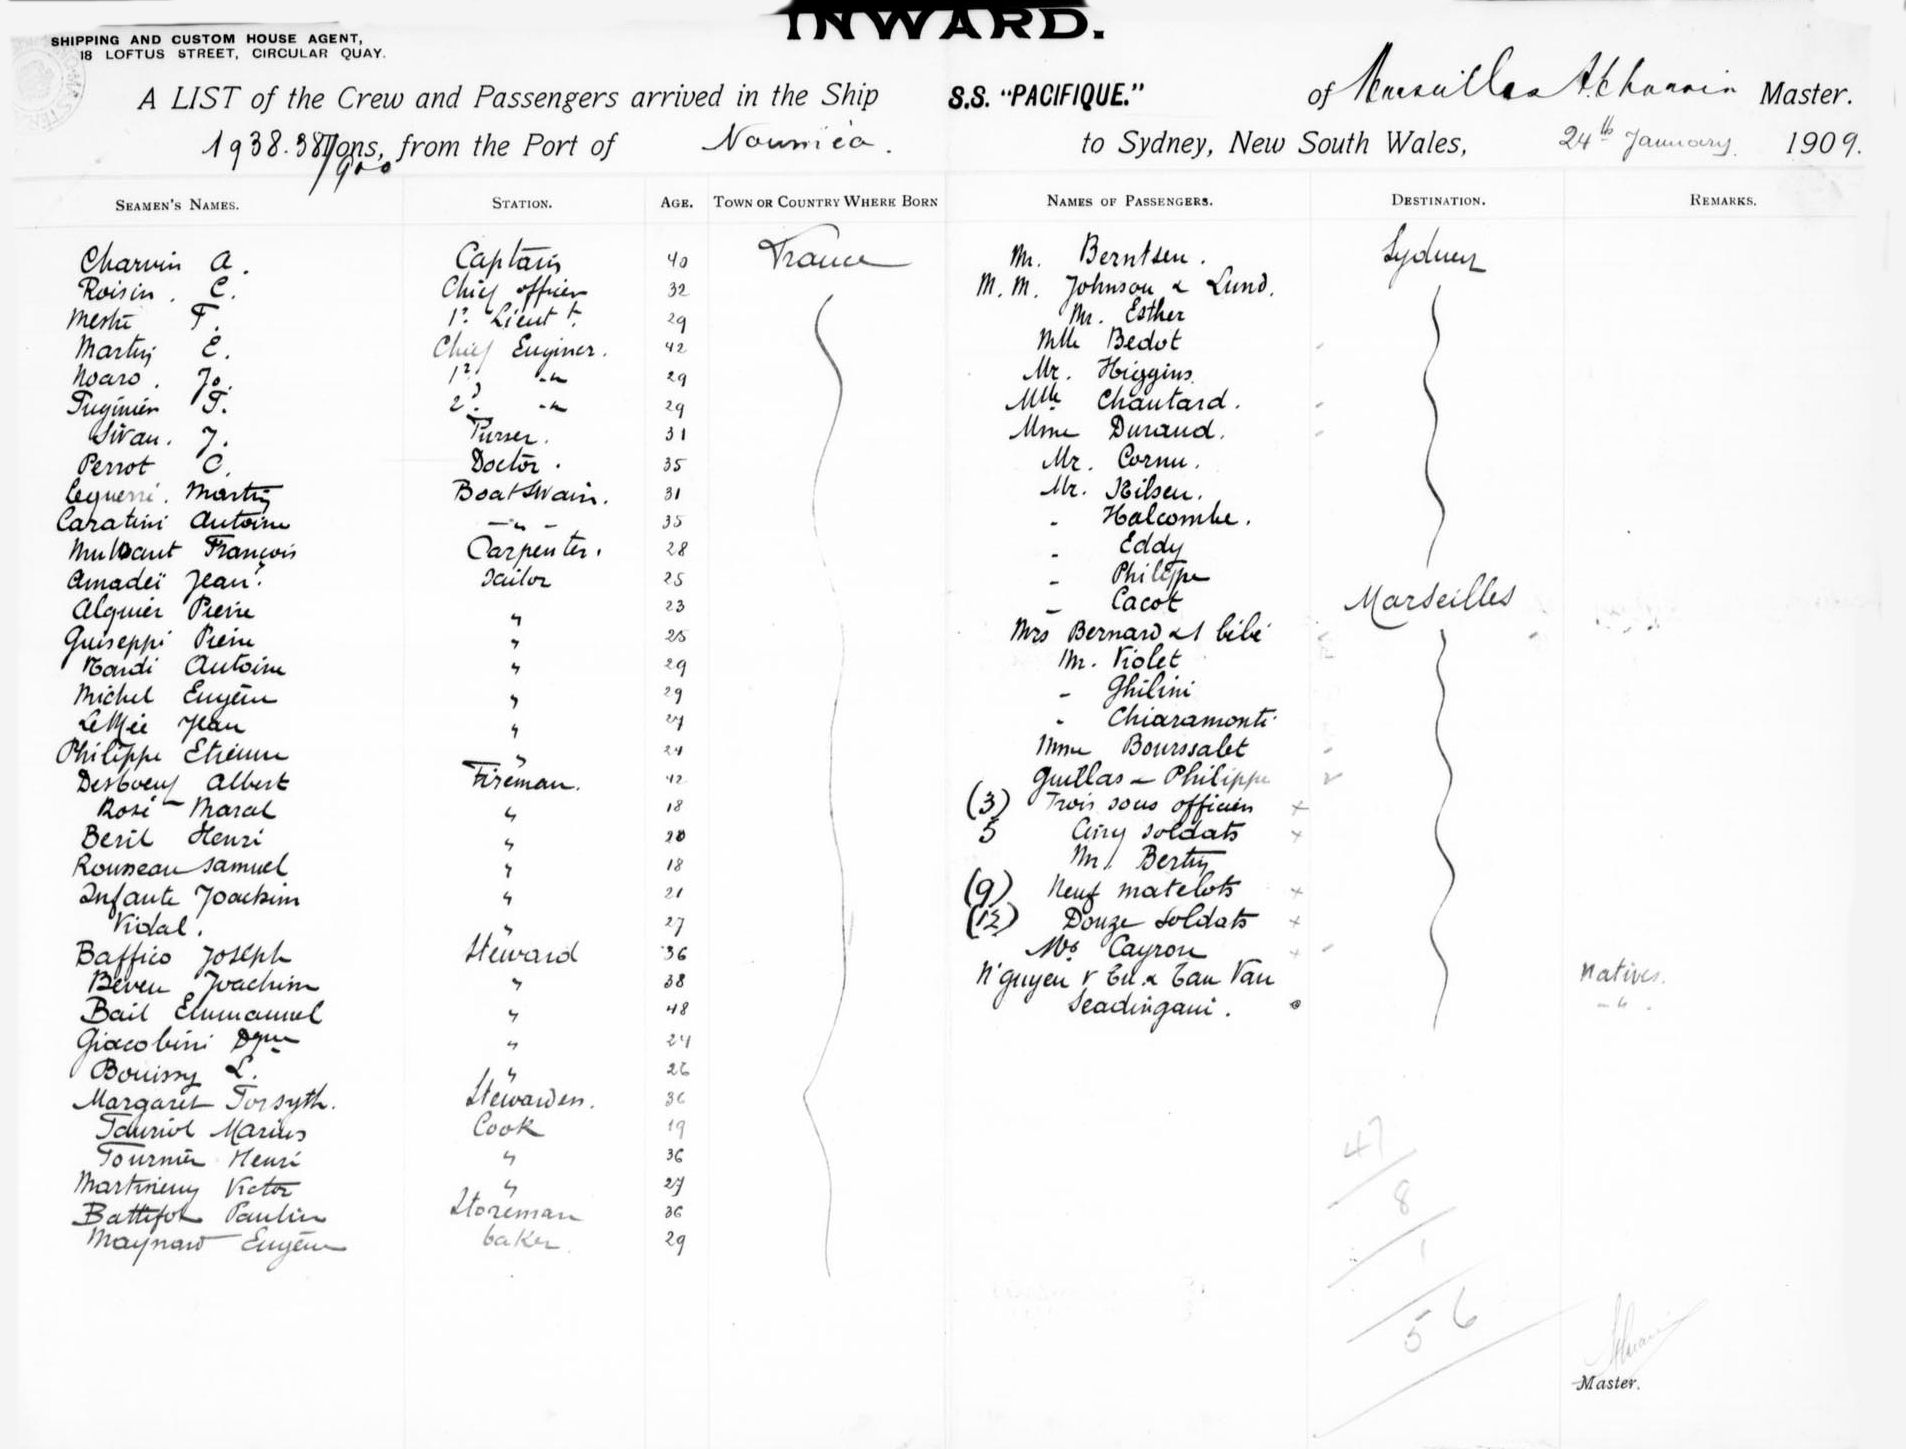 INWARD.
SHIPPING AND CUSTOM HOUSE AGENT,
18 LOFTUS STREET, CIRCULAR QUAY.
A LIST of the Crew and Passengers arrived in the Ship S.S. "PACIFIQUE." of Marseilles A. Charvin Master.
1938.387/900 Tons, from the Port of Nouméa. to Sydney, New South Wales, 24th January 1909.
SEAMEN'S NAMES. STATION. AGE. TOWN OR COUNTRY WHERE BORN NAMES OF PASSENGERS. DESTINATION. REMARKS.
Charvin A. Captain 40 France Mr. Berntsen. Sydney
Roisin. C. Chief officer 32 M.M. Johnson & Lund.
F. 1r. Lieutt. 29 Mr. Esther
Martin E. Chief Enginer. 42 Mlle Bedot
Noaro. Jo. 1r " 29 Mr. Higgins.
F. 2d. " 29 Mlle Chautard.
Sivan. J. Purser. 31 Mme Durand.
Perrot C. Doctor. 35 Mr. Cornu.
Martin Boatswain. 31 Mr. Nilsen.
Caratini Antoine " 35 - Halcombe.
François Carpenter. 28 - Eddy
Amadeï Jean. Sailor 25 - Philippe
Alquier Pierre " 23 - Cacot Marseilles
Guiseppi Pierre " 25 Mrs Bernard & 1 bébé
Nardi Antoine " 29 Mr. Violet
Michel Eugène " 29 - Ghilini
Le Mée Jean " 27 - Chiaramonti
Philippe Etienne " 24 Mme Bourssalet
Desboeuf Albert Fireman. 42 Guillas & Philippe
Rosé Maral " 18 (3) Trois sous officiers
Beril Henri " 20 5 Cinq soldats
Rousseau Samuel " 18 Mr. Bertin
Infante Joachim " 21 (9) Neuf matelots
Vidal. " 27 (12) Douze soldats
Baffico Joseph Steward 36 Mrs Cayron
Beven Joachim " 38 N'guyen V Tu & Tan Van Natives.
Bail Emmanuel " 48 Seadingani. - " -
Giacobini Dque " 24
Bouissy L. " 26
Margaret Forsyth. Stewardess. 36
Tauriol Marius Cook 19
Tournier Henri " 36
Victor " 27
Battifol Paulin Storeman 36
Maynard Eugène baker 29
47
8
1
56
Master.